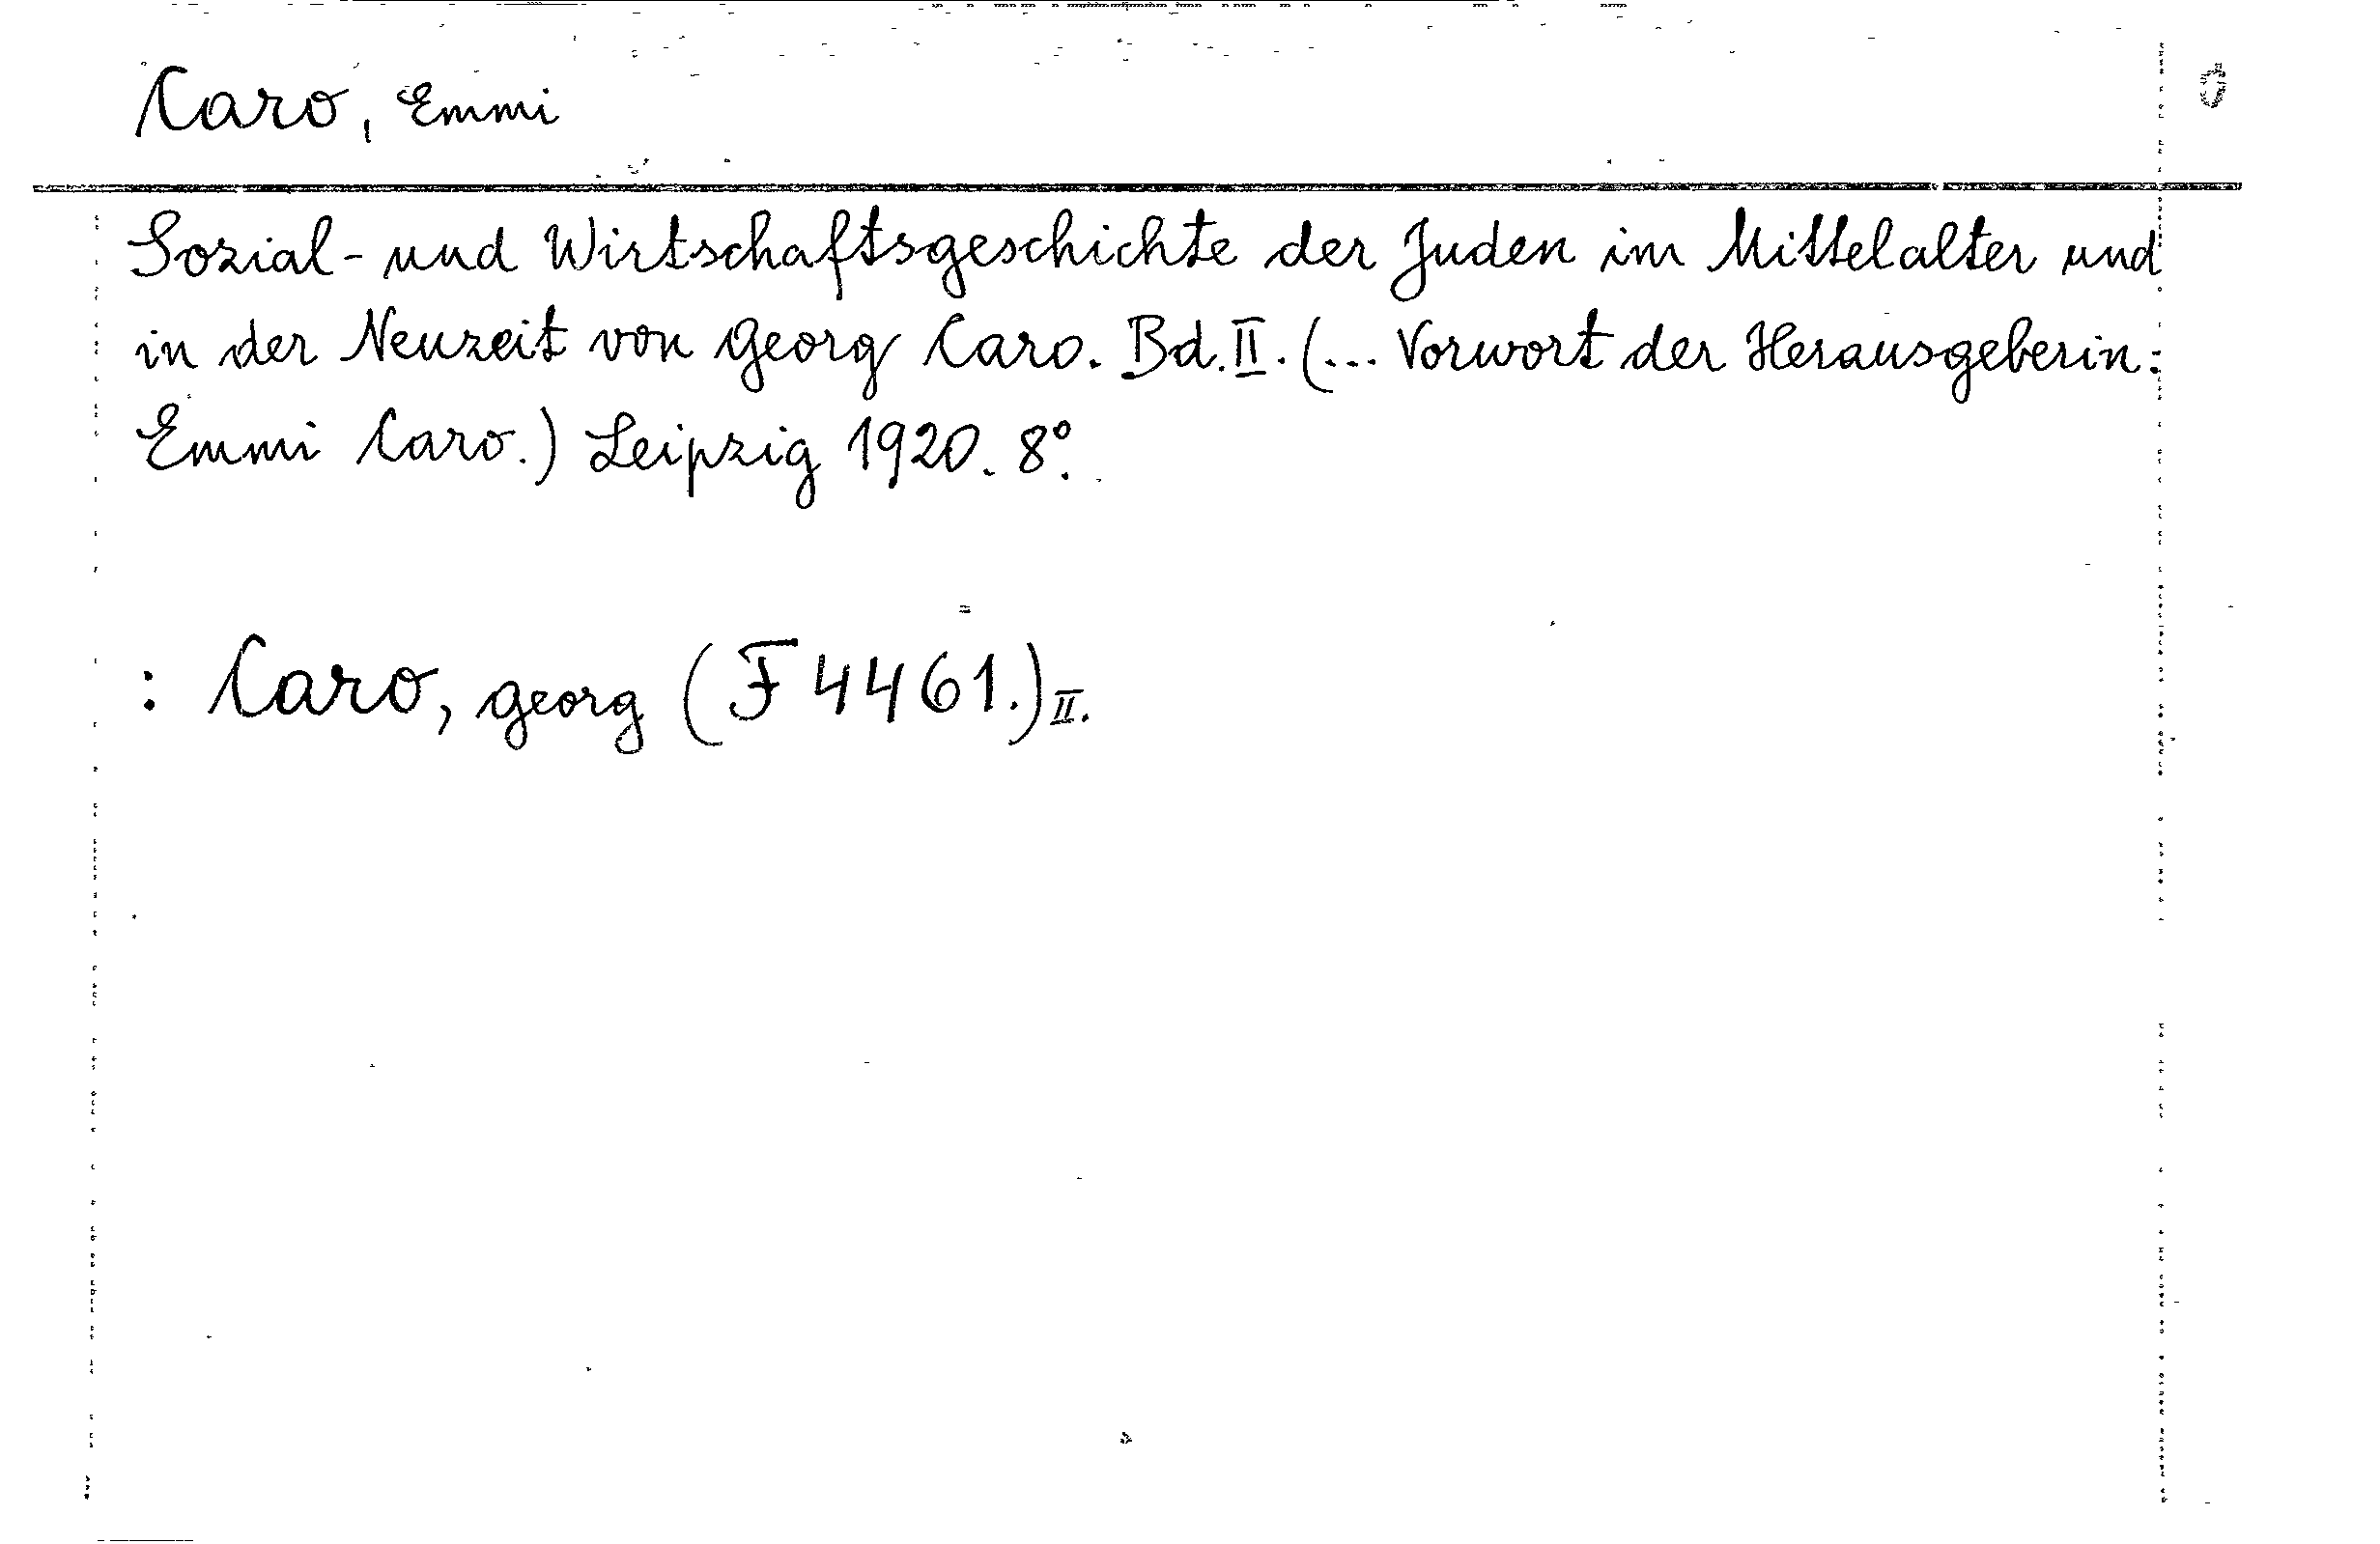 Caro, Emmi
Sozial- und Wirtschaftsgeschichte der Juden im Mittelalter und
in der Neuzeit von Georg Caro. Bd. II. (... Vorwort der Herausgeberin:
Emmi Caro.) Leipzig 1920. 8°.
: Caro, Georg (F 4461.) II.